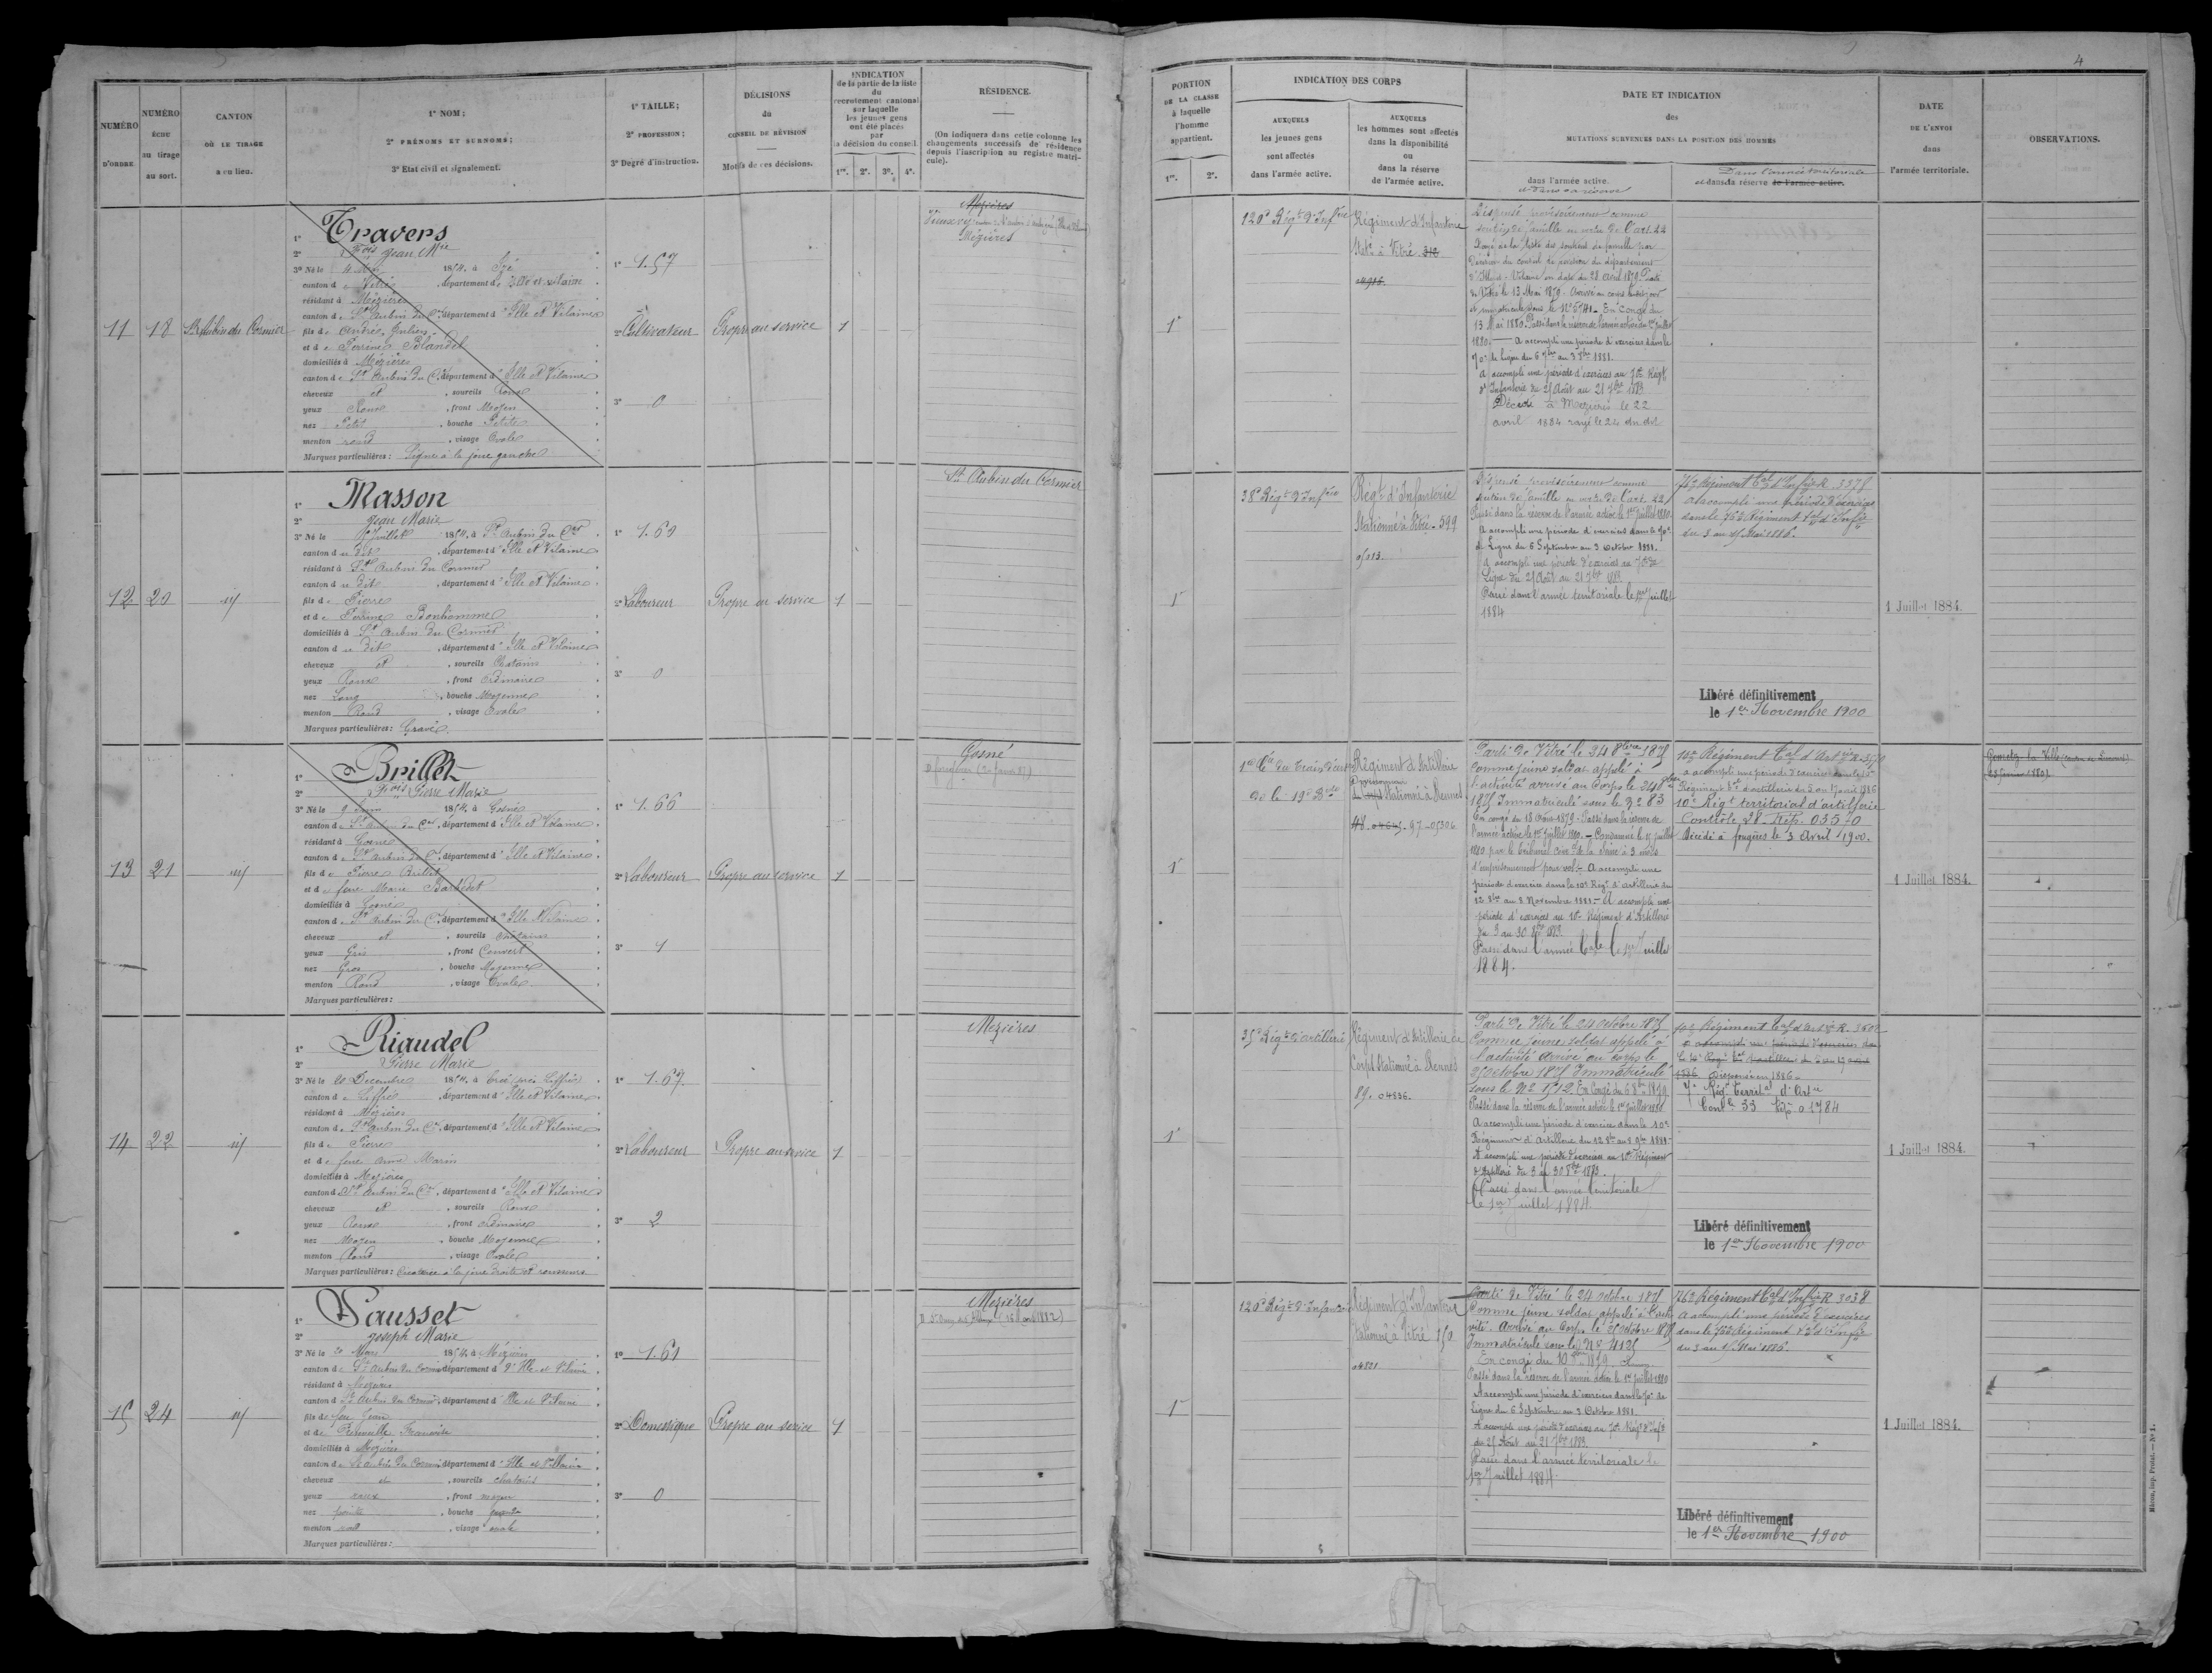 4
NUMÉRO
D'ORDRE
NUMÉRO
ÉCHU
au tirage
au sort.
CANTON
OÙ LE TIRAGE
a eu lieu.
1º NOM;
2º PRÉNOMS ET SURNOMS;
3º Etat civil et signalement.
1º TAILLE;
2º PROFESSION;
3º Degré d'instruction.
DÉCISIONS
du
CONSEIL DE RÉVISION
Motifs de ces décisions.
INDICATION
de la partie de la liste
du
recrutement cantonal
sur laquelle
les jeunes gens
ont été placés
par
la décision du conseil.
1re. 2e. 3e. 4e.
RÉSIDENCE.
(On indiquera dans cette colonne les
changements successifs de résidence
depuis l'inscription au registre matri-
cule).
PORTION
DE LA CLASSE
à laquelle
l'homme
appartient.
1re. 2e.
INDICATION DES CORPS
AUXQUELS
les jeunes gens
sont affectés
dans l'armée active.
AUXQUELS
les hommes sont affectés
dans la disponibilité
ou
dans la réserve
de l'armée active.
DATE ET INDICATION
des
MUTATIONS SURVENUES DANS LA POSITION DES HOMMES
dans l'armée active.
Dans l'armée territoriale
et dans la réserve de l'armée active.
DATE
DE L'ENVOI
dans
l'armée territoriale.
OBSERVATIONS.
11 18 St Aubin du Cormier
1º Travers
2º Fois Jean Mie
3º Né le 4 Mai 1854, à
canton de Vitré, département d'Ille et Vilaine
résidant à Mézières
canton de St Aubin du Cer, département d'Ille et Vilaine
fils de André Julien
et de Perrine Blandel
domiciliés à Mézières
canton de St Aubin du Cer, département d'Ille et Vilaine
cheveux et, sourcils Roux
yeux Roux, front Moyen
nez Petit, bouche Petite
menton rond, visage Ovale
Marques particulières: Signe à la joue gauche
1º 1.57
2º Cultivateur
3º 0
Propre au service 1
Mézières
Mézières
1re
120e Régt d'Infie
Régiment d'Infanterie
à Vitré 312
Dispensé provisoirement comme
soutien de famille en vertu de l'art. 22
Rayé de la liste des soutiens de famille par
décision du conseil de révision du département
d'Ille et Vilaine en date du 28 Avril 1879. Parti
de Vitré le 13 Mai 1879. Arrivé au corps
et immatriculé sous le Nº 5741. En congé du
13 Mai 1880. Passé dans la réserve de l'armée active du 1er juillet
1880. A accompli une période d'exercices dans le
70e de ligne du 6 7bre au 3 8bre 1881.
A accompli une période d'exercices au 70e Régt
d'Infanterie du 25 Août au 21 7bre 1883
Décédé à Mézières le 22
avril 1884 rayé le 24 du dit
12 20 id
1º Masson
2º Jean Marie
3º Né le Juillet 1854, à St Aubin du Cer
canton du dit, département d'Ille et Vilaine
résidant à St Aubin du Cormier
canton du dit, département d'Ille et Vilaine
fils de Pierre
et de Perrine Bonhomme
domiciliés à St Aubin du Cormier
canton du dit, département d'Ille et Vilaine
cheveux et, sourcils Chatains
yeux Roux, front Ordinaire
nez Long, bouche Moyenne
menton Rond, visage Ovale
Marques particulières: Gravé
1º 1.60
2º Laboureur
3º 0
Propre au service 1
St Aubin du Cormier
1re
38e Régt d'Infie
Régt d'Infanterie
Stationné à Vitré - 599
Dispensé provisoirement comme
soutien de famille en vertu de l'art. 22
Passé dans la réserve de l'armée active le 1er juillet 1880.
A accompli une période d'exercices dans le 70e
de Ligne du 6 Septembre au 3 octobre 1881.
A accompli une période d'exercices au 70e de
Ligne du 25 Août au 21 7bre 1883
Passé dans l'armée territoriale le 1er Juillet
1884
76e Régiment Tal d'Infie R. 3375
A accompli une période d'exercices
dans le 76e Régiment Tal d'Infie
du 3 au 15 Mai 1886.
Libéré définitivement
le 1er Novembre 1900
1 Juillet 1884.
13 21 id
1º Brillet
2º Fois Pierre Marie
3º Né le 9 Juin 1854, à Gosné
canton de St Aubin du Cer, département d'Ille et Vilaine
résidant à Gosné
canton de St Aubin du Cer, département d'Ille et Vilaine
fils de Pierre Brillet
et de feue Marie Barbedet
domiciliés à Gosné
canton de St Aubin du Cer, département d'Ille et Vilaine
cheveux et, sourcils Chatains
yeux Gris, front Couvert
nez Gros, bouche Moyenne
menton Rond, visage Ovale
Marques particulières:
1º 1.66
2º Laboureur
3º 1
Propre au service 1
Gosné
1re
1re Cie du train d'artie
de la 19e Bde
Régiment d'Artillerie
stationné à Rennes
Parti de Vitré le 24 8bre 1875
comme jeune soldat appelé à
l'activité arrivé au corps le 24 8bre
1875 Immatriculé sous le Nº 83
En congé du 18 Août 1879. Passé dans la réserve de
l'armée active le 1er Juillet 1880. Condamné le juillet
1880 par le tribunal de la Seine à 3 mois
d'emprisonnement pour vol. A accompli une
période d'exercice dans le 10e Régt d'artillerie du
12 8bre au 8 Novembre 1881. A accompli une
période d'exercices au 10e Régiment d'Artillerie
du 3 au 30 8bre 1883.
Passé dans l'armée Tale le 1er Juillet
1884.
10e Régiment Tal d'Artie
a accompli une période d'exercices dans le 10e
Régiment Tal d'artillerie du 3 au 17 avril 1886
10e Régt territorial d'artillerie
Contrôle 28. Rep. 03570
Décédé à Fougères le 3 Avril 1900.
1 Juillet 1884.
14 22 id
1º Riaudel
2º Pierre Marie
3º Né le 20 Décembre 1854, à Ercé près Liffré
canton de Liffré, département d'Ille et Vilaine
résidant à Mézières
canton de St Aubin du Cer, département d'Ille et Vilaine
fils de Pierre
et de feue Anne Marin
domiciliés à Mézières
canton de St Aubin du Cer, département d'Ille et Vilaine
cheveux et, sourcils Roux
yeux Roux, front Ordinaire
nez Moyen, bouche Moyenne
menton Rond, visage Ovale
Marques particulières: Cicatrice à la joue droite et rousseurs
1º 1.67
2º Laboureur
3º 2
Propre au service 1
Mézières
1re
35e Régt d'artillerie
Régiment d'Artillerie de
Corps Stationné à Rennes
89. 04836.
Parti de Vitré le 24 octobre 1875
Comme jeune soldat appelé à
l'activité Arrivé au corps le
25 octobre 1875 Immatriculé
sous le Nº 1512. En congé du 6 8bre 1879
Passé dans la réserve de l'armée active le 1er Juillet 1880
A accompli une période d'exercices dans le 10e
Régiment d'Artillerie du 12 8bre au 8 9bre 1881.
A accompli une période d'exercices au 10e Régiment
d'Artillerie du 3 au 30 8bre 1883
Passé dans l'armée territoriale
le 1er Juillet 1884.
10e Régiment Tal d'Artie R. 3602
7e Régt Territal d'Artie
Conle 33 Repe 01784
Libéré définitivement
le 1er Novembre 1900
1 Juillet 1884.
15 24 id
1º Pausset
2º Joseph Marie
3º Né le 20 Mars 1854, à Mézières
canton de St Aubin du Cormier, département d'Ille et Vilaine
résidant à Mézières
canton de St Aubin du Cormier, département d'Ille et Vilaine
fils de feu Jean
et de
domiciliés à Mézières
canton de St Aubin du Cormier, département d'Ille et Vilaine
cheveux et, sourcils chatains
yeux roux, front moyen
nez pointu, bouche
menton rond, visage ovale
Marques particulières:
1º 1.61
2º Domestique
3º 0
Propre au service 1
Mézières
1re
120e Régt d'Infanterie
Régiment d'Infanterie
Stationné à Vitré 150
Parti de Vitré le 24 octobre 1875
Comme jeune soldat appelé à l'acti-
vité. Arrivé au Corps le 25 octobre 1875
Immatriculé sous le Nº 4125
Passé dans la réserve de l'armée active le 1er juillet 1880
A accompli une période d'exercices dans le 70e de
Ligne du 6 Septembre au 3 Octobre 1881.
A accompli une période d'exercices au 70e Régt d'Infie
du 25 Août au 21 7bre 1883.
Passé dans l'armée territoriale le
1er Juillet 1884.
76e Régiment Tal d'Infie R 3038
A accompli une période d'exercices
dans le 76e Régiment Tal d'Infie
du 3 au 15 Mai 1886.
Libéré définitivement
le 1er Novembre 1900
1 Juillet 1884.
Mâcon, imp. Protat. — Nº 1.